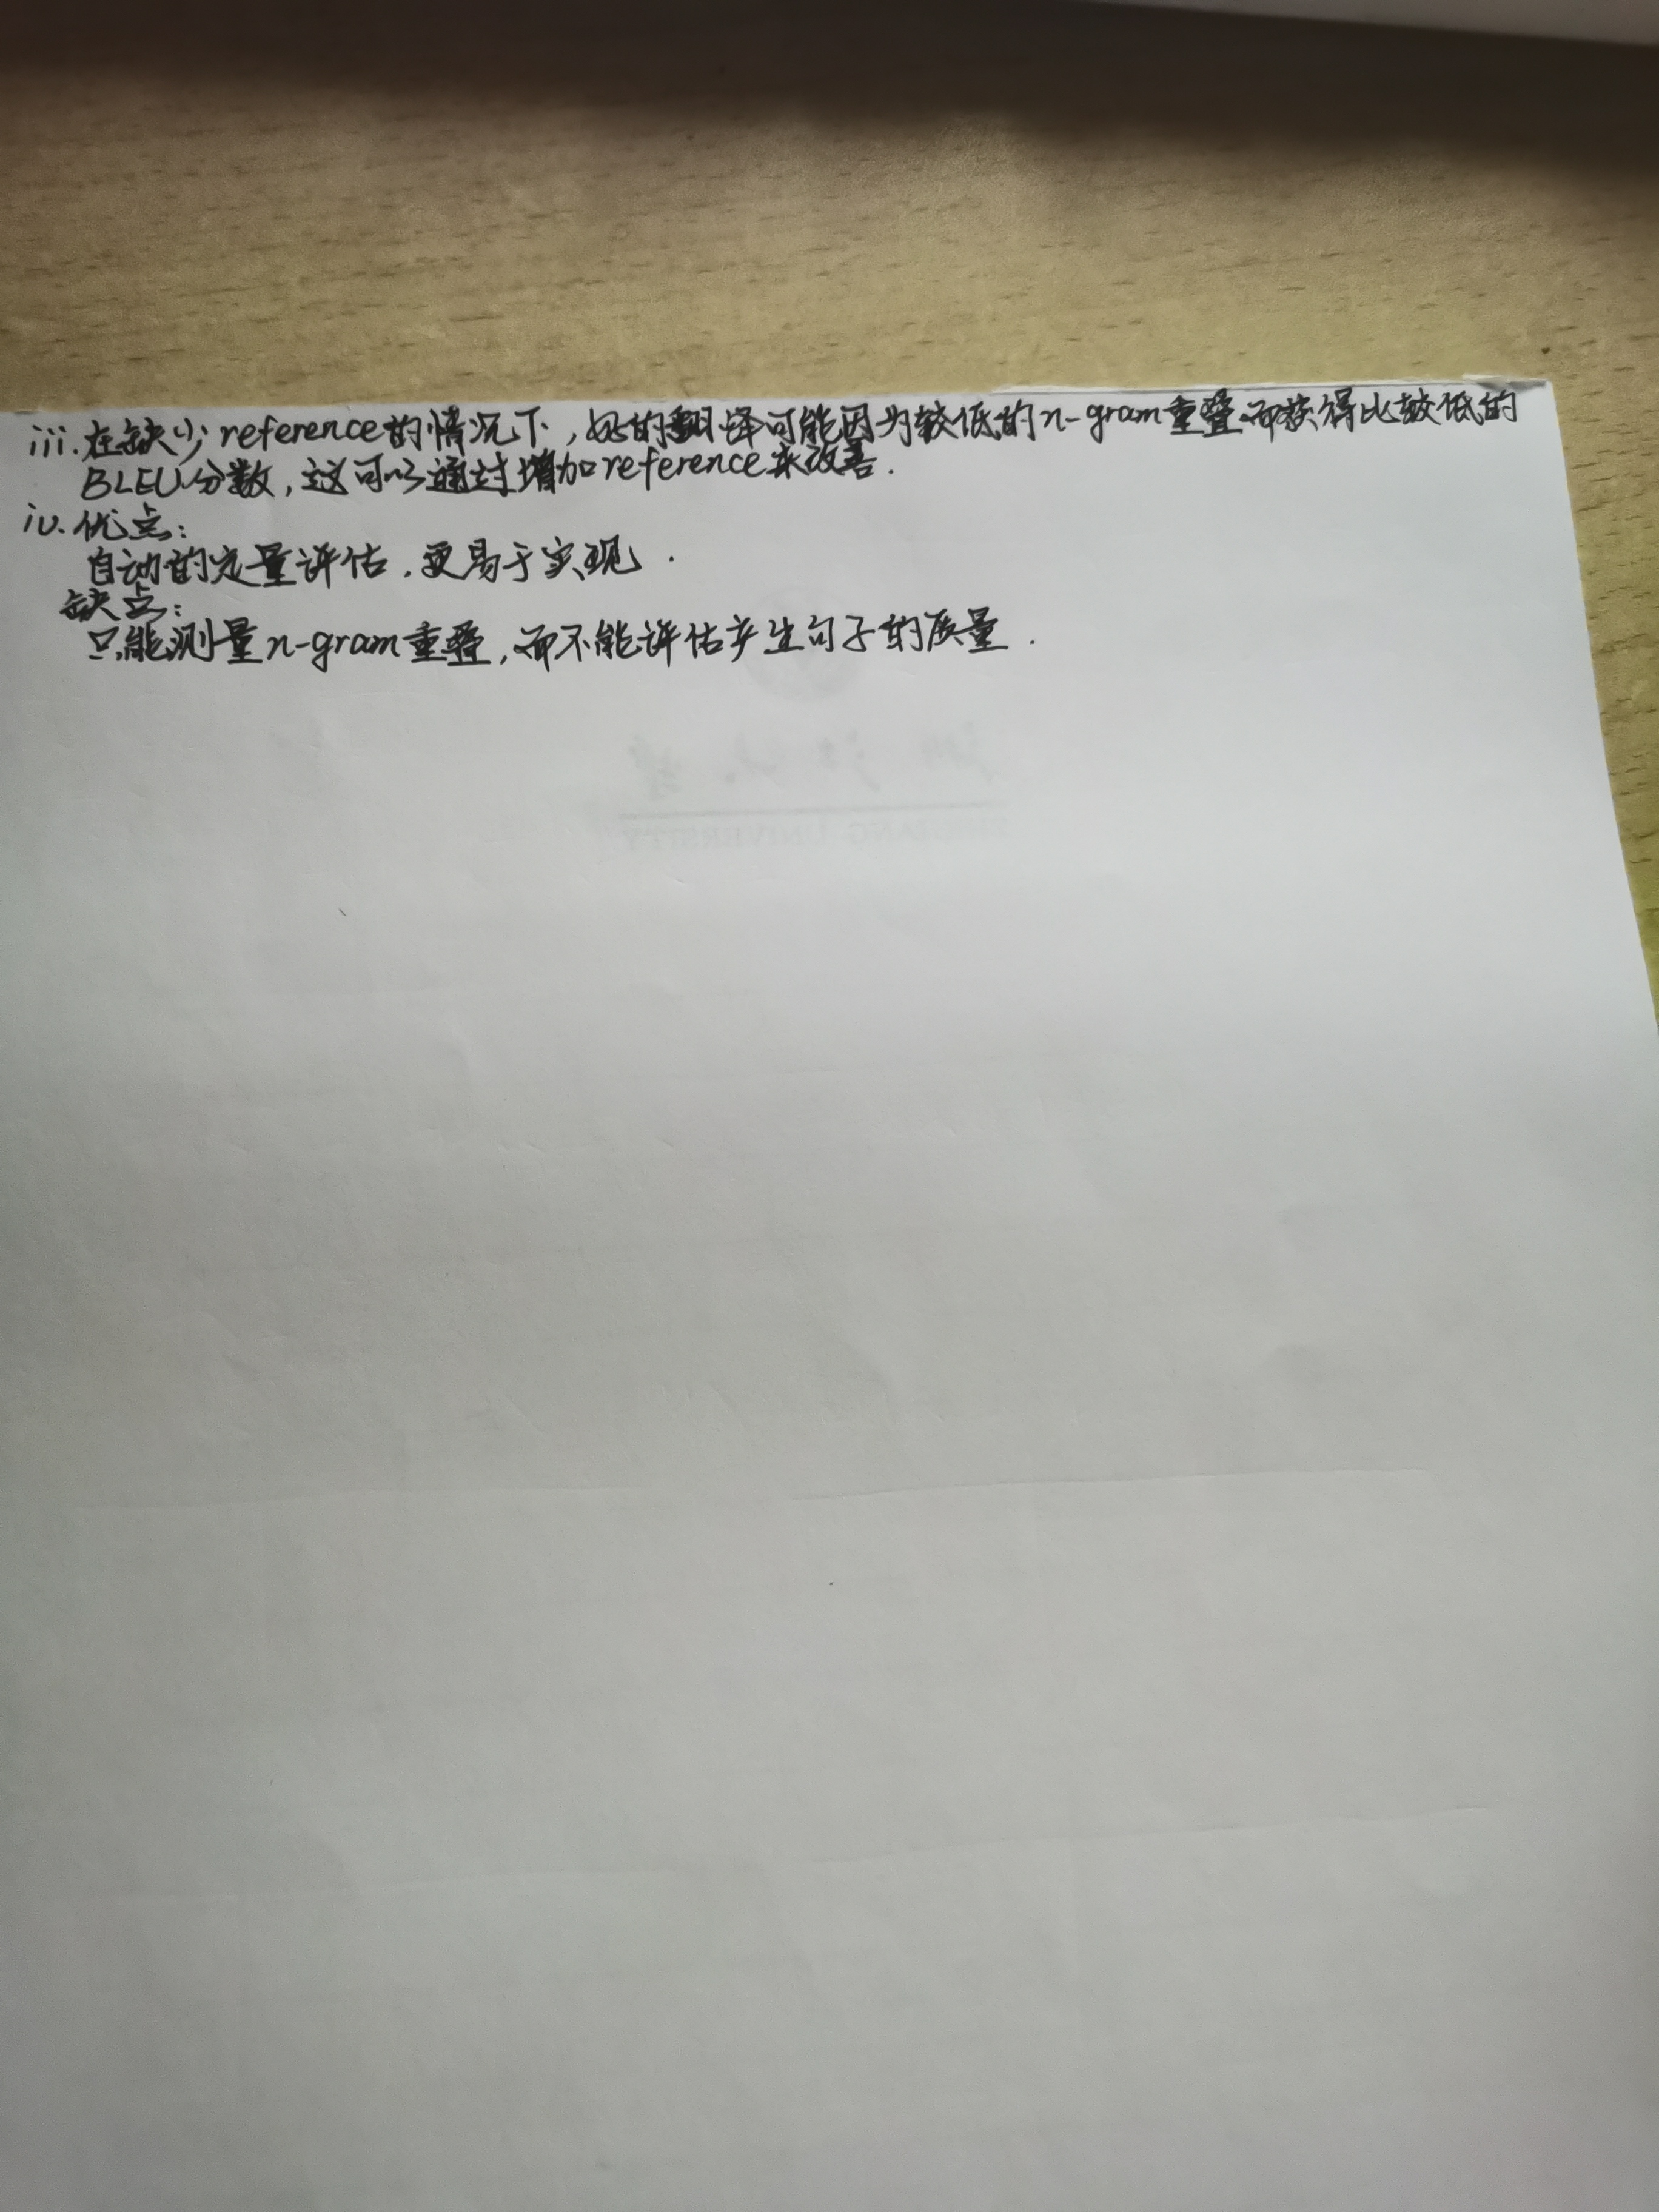 iii. 在缺少reference的情况下,好的翻译可能因为较低的n-gram重叠而获得比较低的
BLEU分数,这可以通过增加reference来改善.
iv. 优点:
自动的定量评估,更易于实现.
缺点:
只能测量n-gram重叠,而不能评估产生句子的质量.
UNIVERSITY